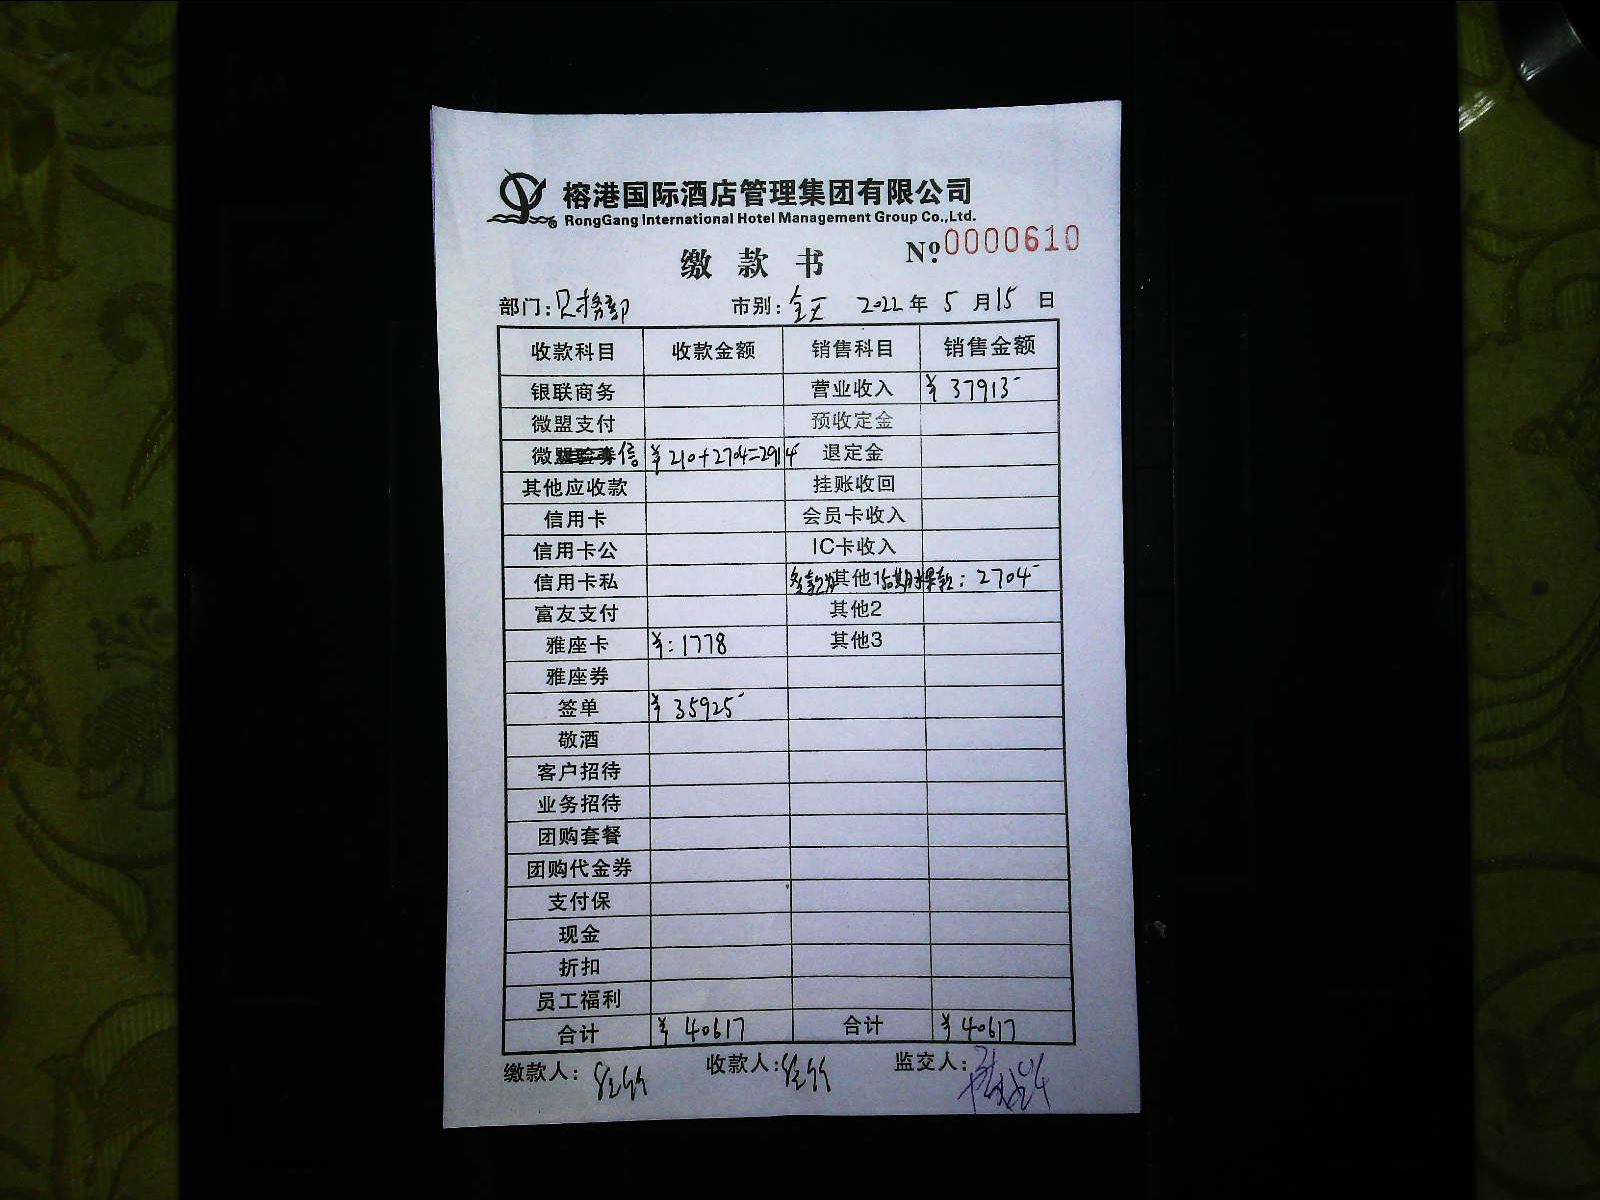 榕港国际酒店管理集团有限公司
RongGang International Hotel Management Group Co.,Ltd.
缴款书 Nº: 0000610
部门:财务部 市别:全天 2022年5月15日
收款科目 收款金额 销售科目 销售金额
银联商务 营业收入 ¥ 37913-
微盟支付 预收定金
微信 ¥ 210+2704=2914 退定金
其他应收款 挂账收回
信用卡 会员卡收入
信用卡公 IC卡收入
信用卡私 其他1 款:2704-
富友支付 其他2
雅座卡 ¥:1778 其他3
雅座券
签单 ¥ 35925-
敬酒
客户招待
业务招待
团购套餐
团购代金券
支付保
现金
折扣
员工福利
合计 ¥ 40617 合计 ¥ 40617
缴款人: 收款人: 监交人: